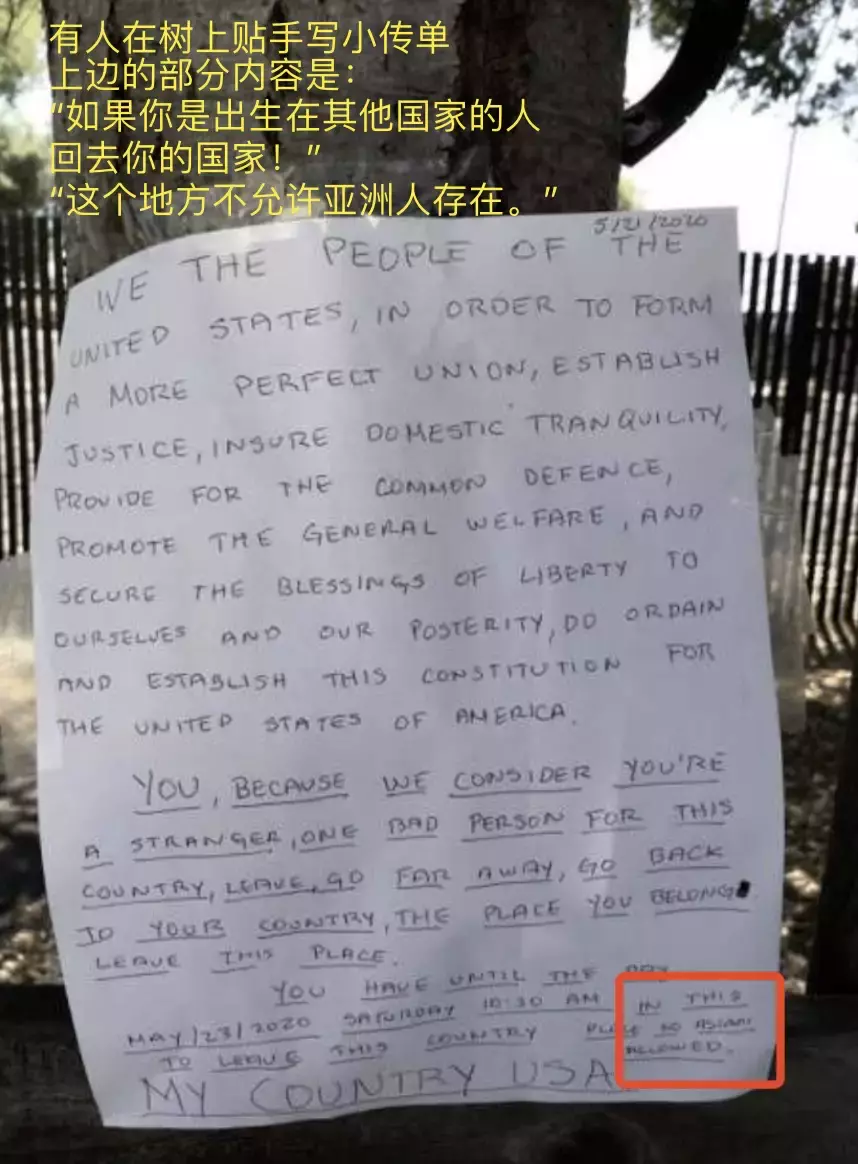 有人在树上贴手写小传单
上边的部分内容是：
“如果你是出生在其他国家的人
回去你的国家！”
“这个地方不允许亚洲人存在。”
5/21/2020
WE THE PEOPLE OF THE
UNITED STATES, IN ORDER TO FORM
A MORE PERFECT UNION, ESTABLISH
JUSTICE, INSURE DOMESTIC TRANQUILITY,
PROVIDE FOR THE COMMON DEFENCE,
PROMOTE THE GENERAL WELFARE, AND
SECURE THE BLESSINGS OF LIBERTY TO
OURSELVES AND OUR POSTERITY, DO ORDAIN
AND ESTABLISH THIS CONSTITUTION FOR
THE UNITED STATES OF AMERICA.
YOU, BECAUSE WE CONSIDER YOU'RE
A STRANGER, ONE BAD PERSON FOR THIS
COUNTRY, LEAVE, GO FAR AWAY, GO BACK
TO YOUR COUNTRY, THE PLACE YOU BELONG
LEAVE THIS PLACE.
YOU HAVE UNTIL THE DAY
MAY/23/2020 SATURDAY 10:30 AM IN THIS
TO LEAVE THIS COUNTRY PLACE NO ASIANS
ALLOWED.
MY COUNTRY USA